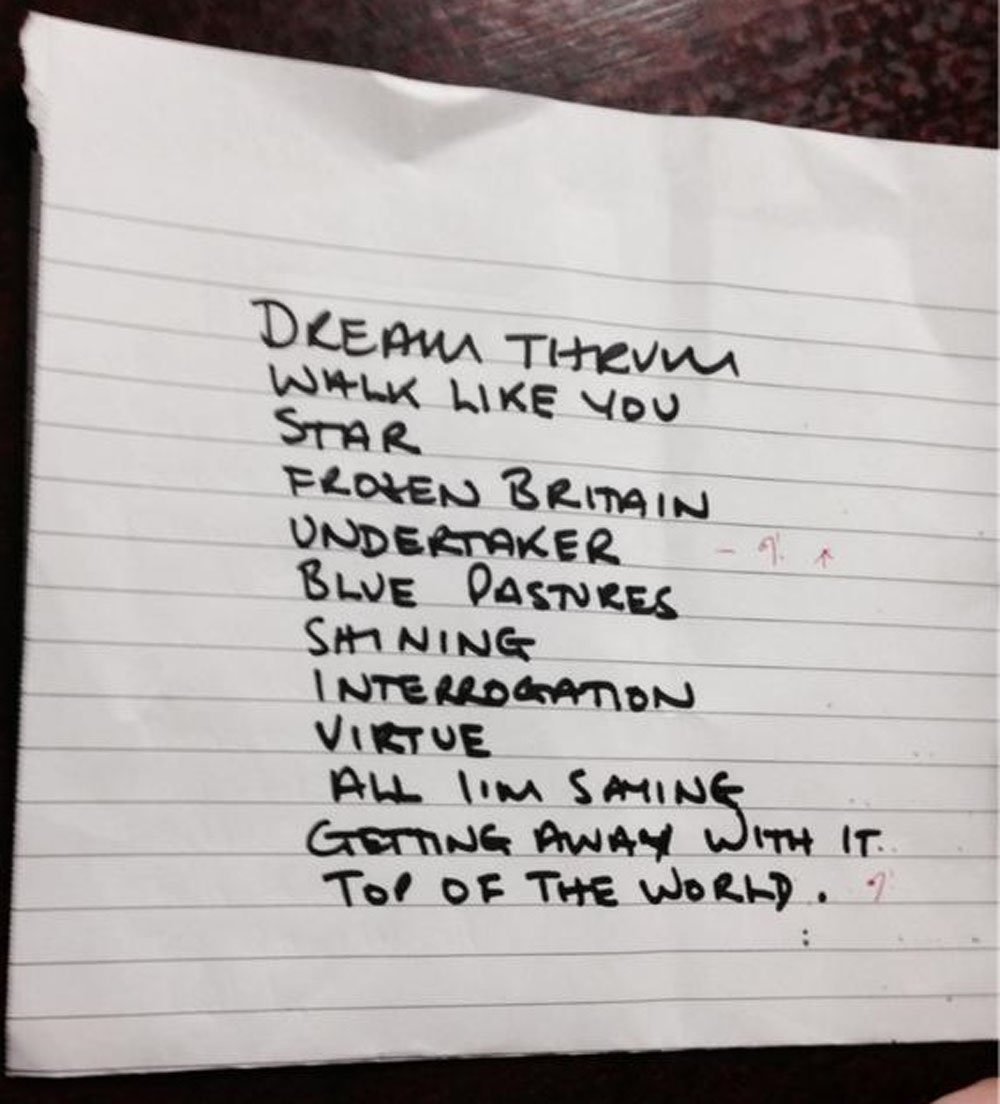 DREAM THRUM
WALK LIKE YOU
STAR
FROZEN BRITAIN
UNDERTAKER
BLUE PASTURES
SHINING
INTERROGATION
VIRTUE
ALL I'M SAYING
GETTING AWAY WITH IT.
TOP OF THE WORLD.